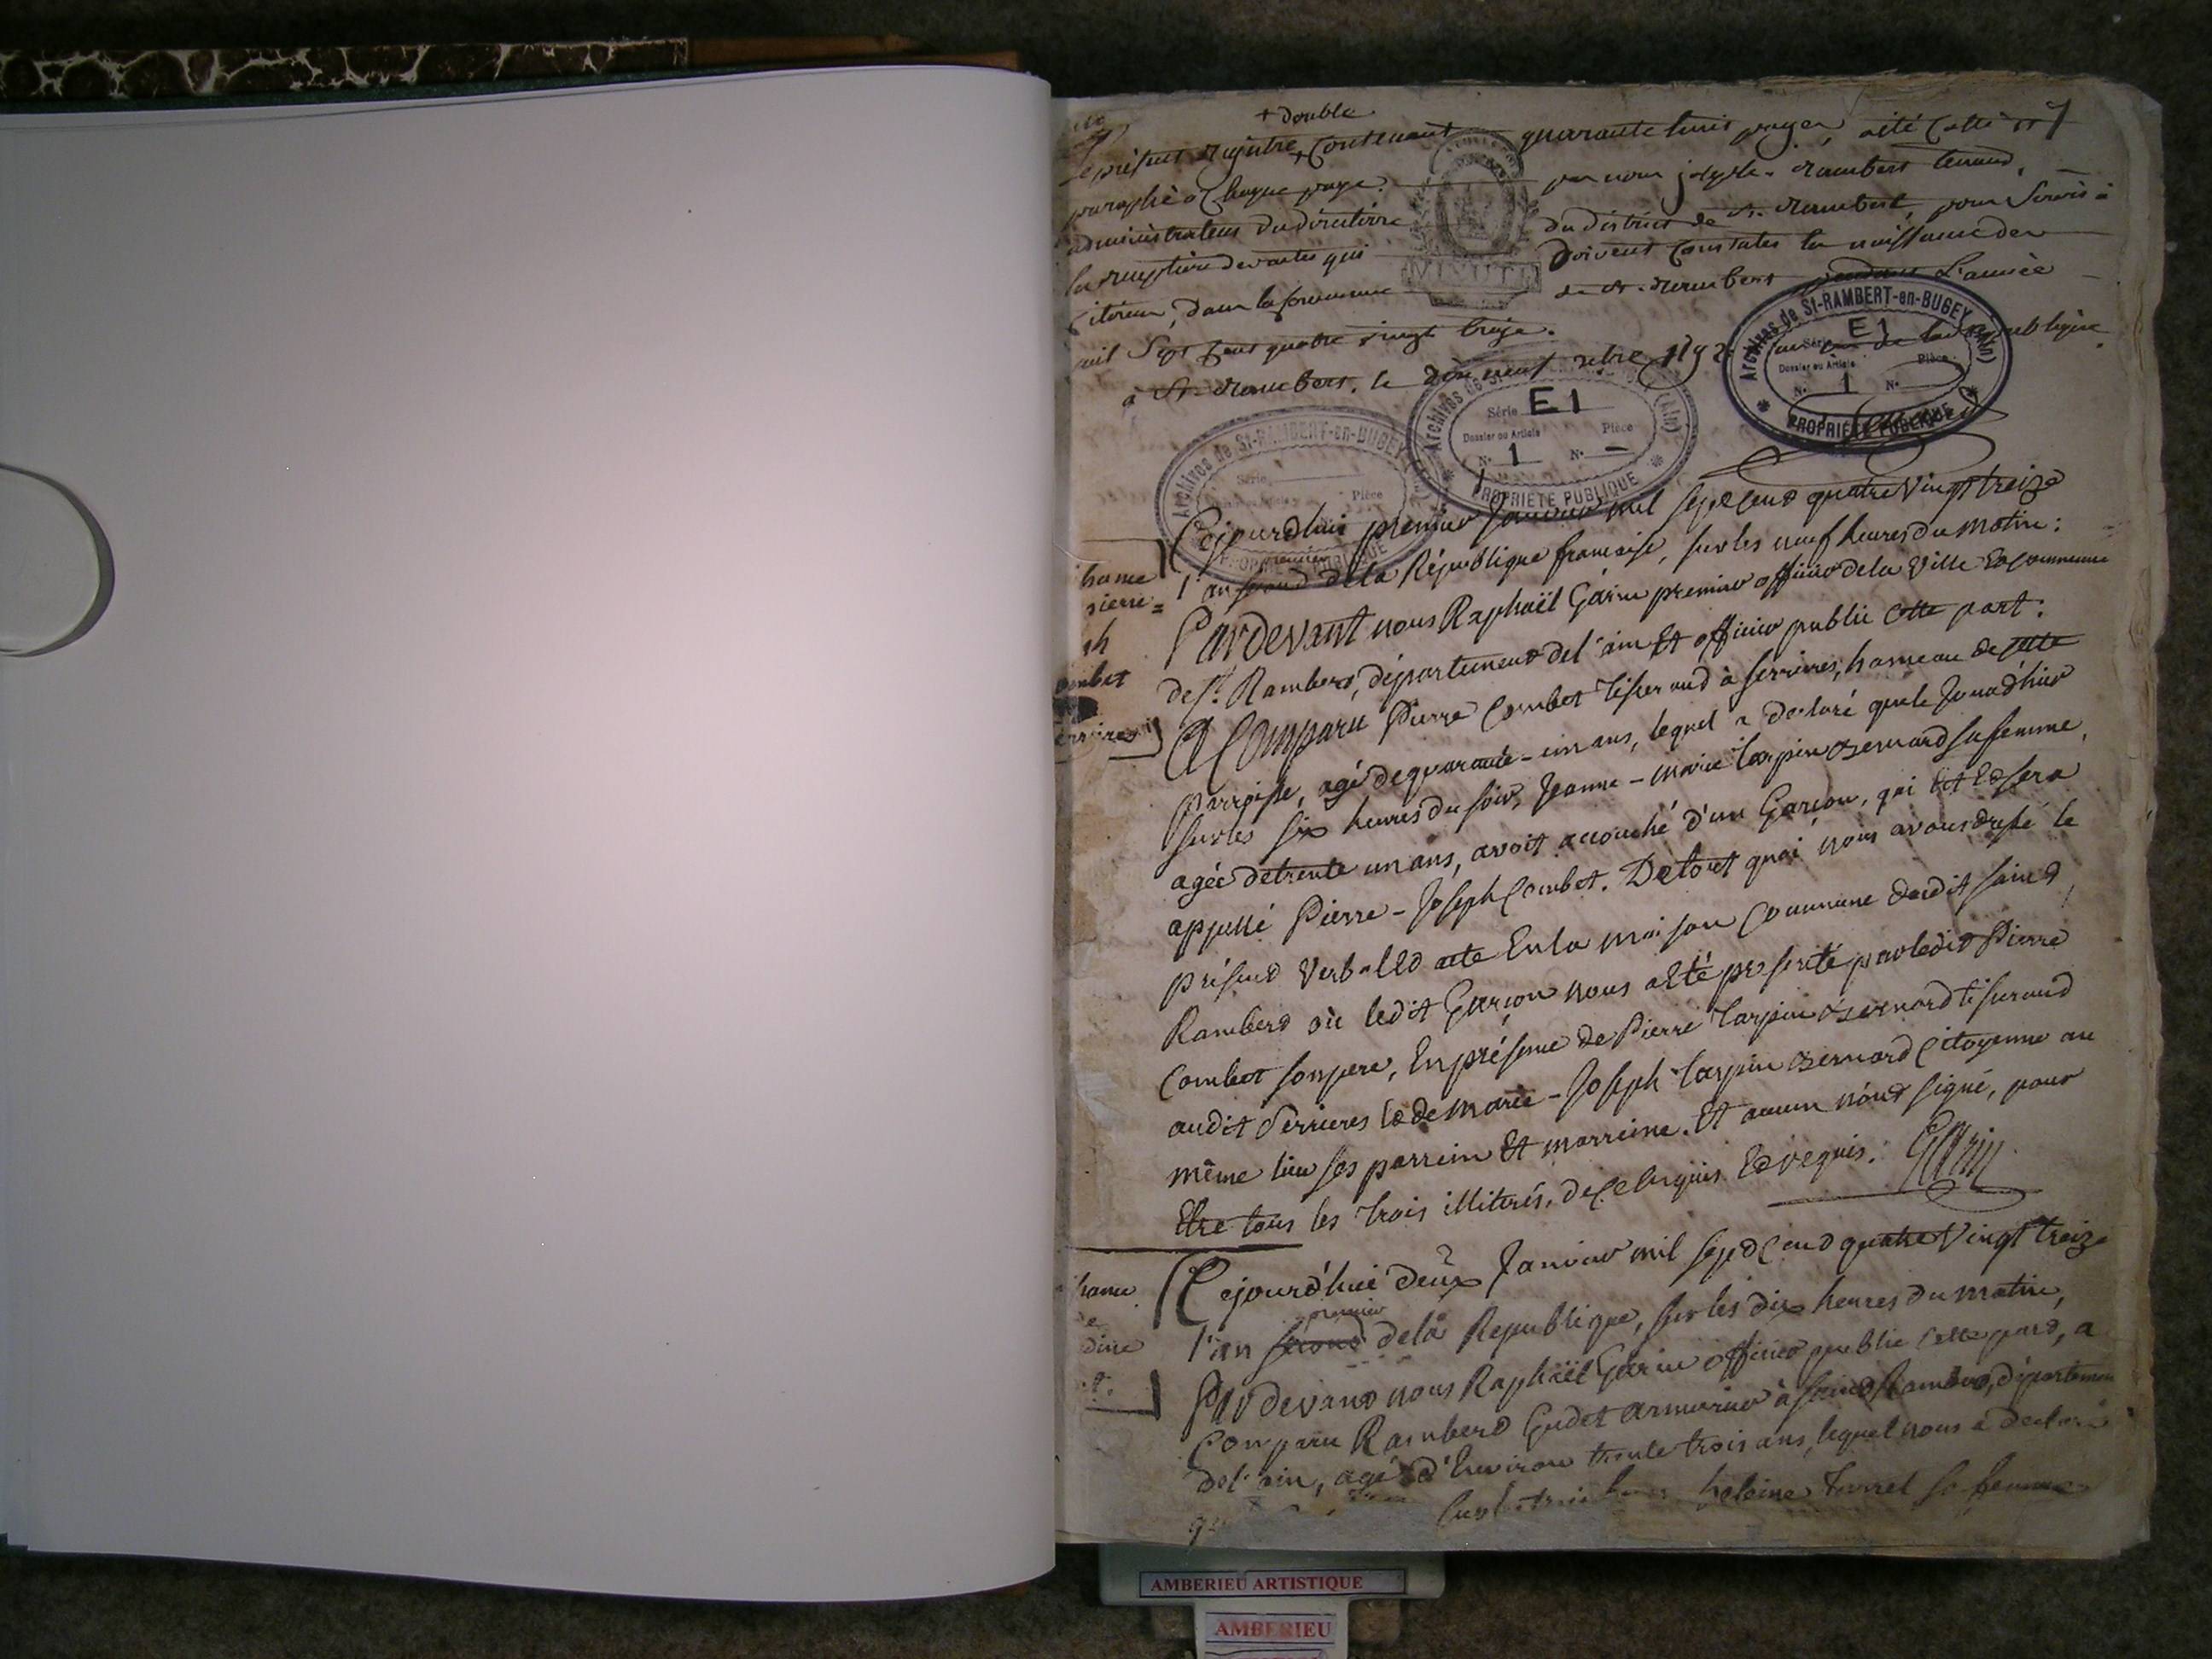 + double
Le présent registre + contenant quarante huit pages, a été cotté et
paraphé à chaque page par nous joseph-rambert tenand,
administrateur du directoire du district de St. rambert, pour servir à
la rédaction des actes qui doivent constater la naissance des
citoiens, dans la commune de St. rambert pendant l'année
mil sept cent quatre vingt treize.
à St. rambert, le dix neuf xbre 1792 de la république
MINUTE
Archives de St-RAMBERT-en-BUGEY (Ain)
Série E1
Dossier ou Article Pièce
No. 1 No.
PROPRIÉTÉ PUBLIQUE
Archives de St-RAMBERT-en-BUGEY (Ain)
Série E1
Dossier ou Article Pièce
No. 1 No. -
PROPRIÉTÉ PUBLIQUE
Archives de St-RAMBERT-en-BUGEY
Série
Pièce
PROPRIÉTÉ PUBLIQUE
Cejourdhui premier Janvier mil sept cent quatre vingt treize
premier
l'an second de la République francaise, sur les neuf heures du matin:
Pardevant nous Raphaël Garin premier officier de la Ville Et commune
de St. Rambert, département de l'ain Et officier public cette part:
A Comparu Pierre Combet tisserand à serrieres, hameau de cette
parroisse, agé de quarante-un ans, lequel a declaré que le Jour d'hier
sur les six heures du soir, Jeanne-marie tarpin Bernard sa femme,
agée de trente un ans, avoit accouché d'un Garcon, qui Est Et sera
appellé Pierre-Joseph Combet. De tout quoi nous avons dressé le
présent Verbal Et acte En la maison Commune dudit saint
Rambert où ledit Garçon nous a Eté présenté par ledit Pierre
Combet son pere, En présence de Pierre tarpin Bernard tisserand
audit Serrieres Et de marie-Joseph tarpin Bernard Citoyenne au
même lieu ses parrein Et marreine. Et aucun n'ont signé, pour
Etre tous les trois illiterés, de ce Enquis Et requis. Garin
hance
pierre=
ph
ombet
errieres
Cejourd'hui deux Janvier mil sept Cent quatre Vingt treize
premier
l'an second de la Republique, sur les dix heures du matin,
Pardevant nous Raphaël Garin officier public cette part, a
Comparu Rambert Gudet armurier à saint Rambert, département
de l'ain, agé d'Environ trente trois ans, lequel nous a declaré
sur les trois heures heleine Juvet sa femme
hance
dine
AMBERIEU ARTISTIQUE
AMBERIEU